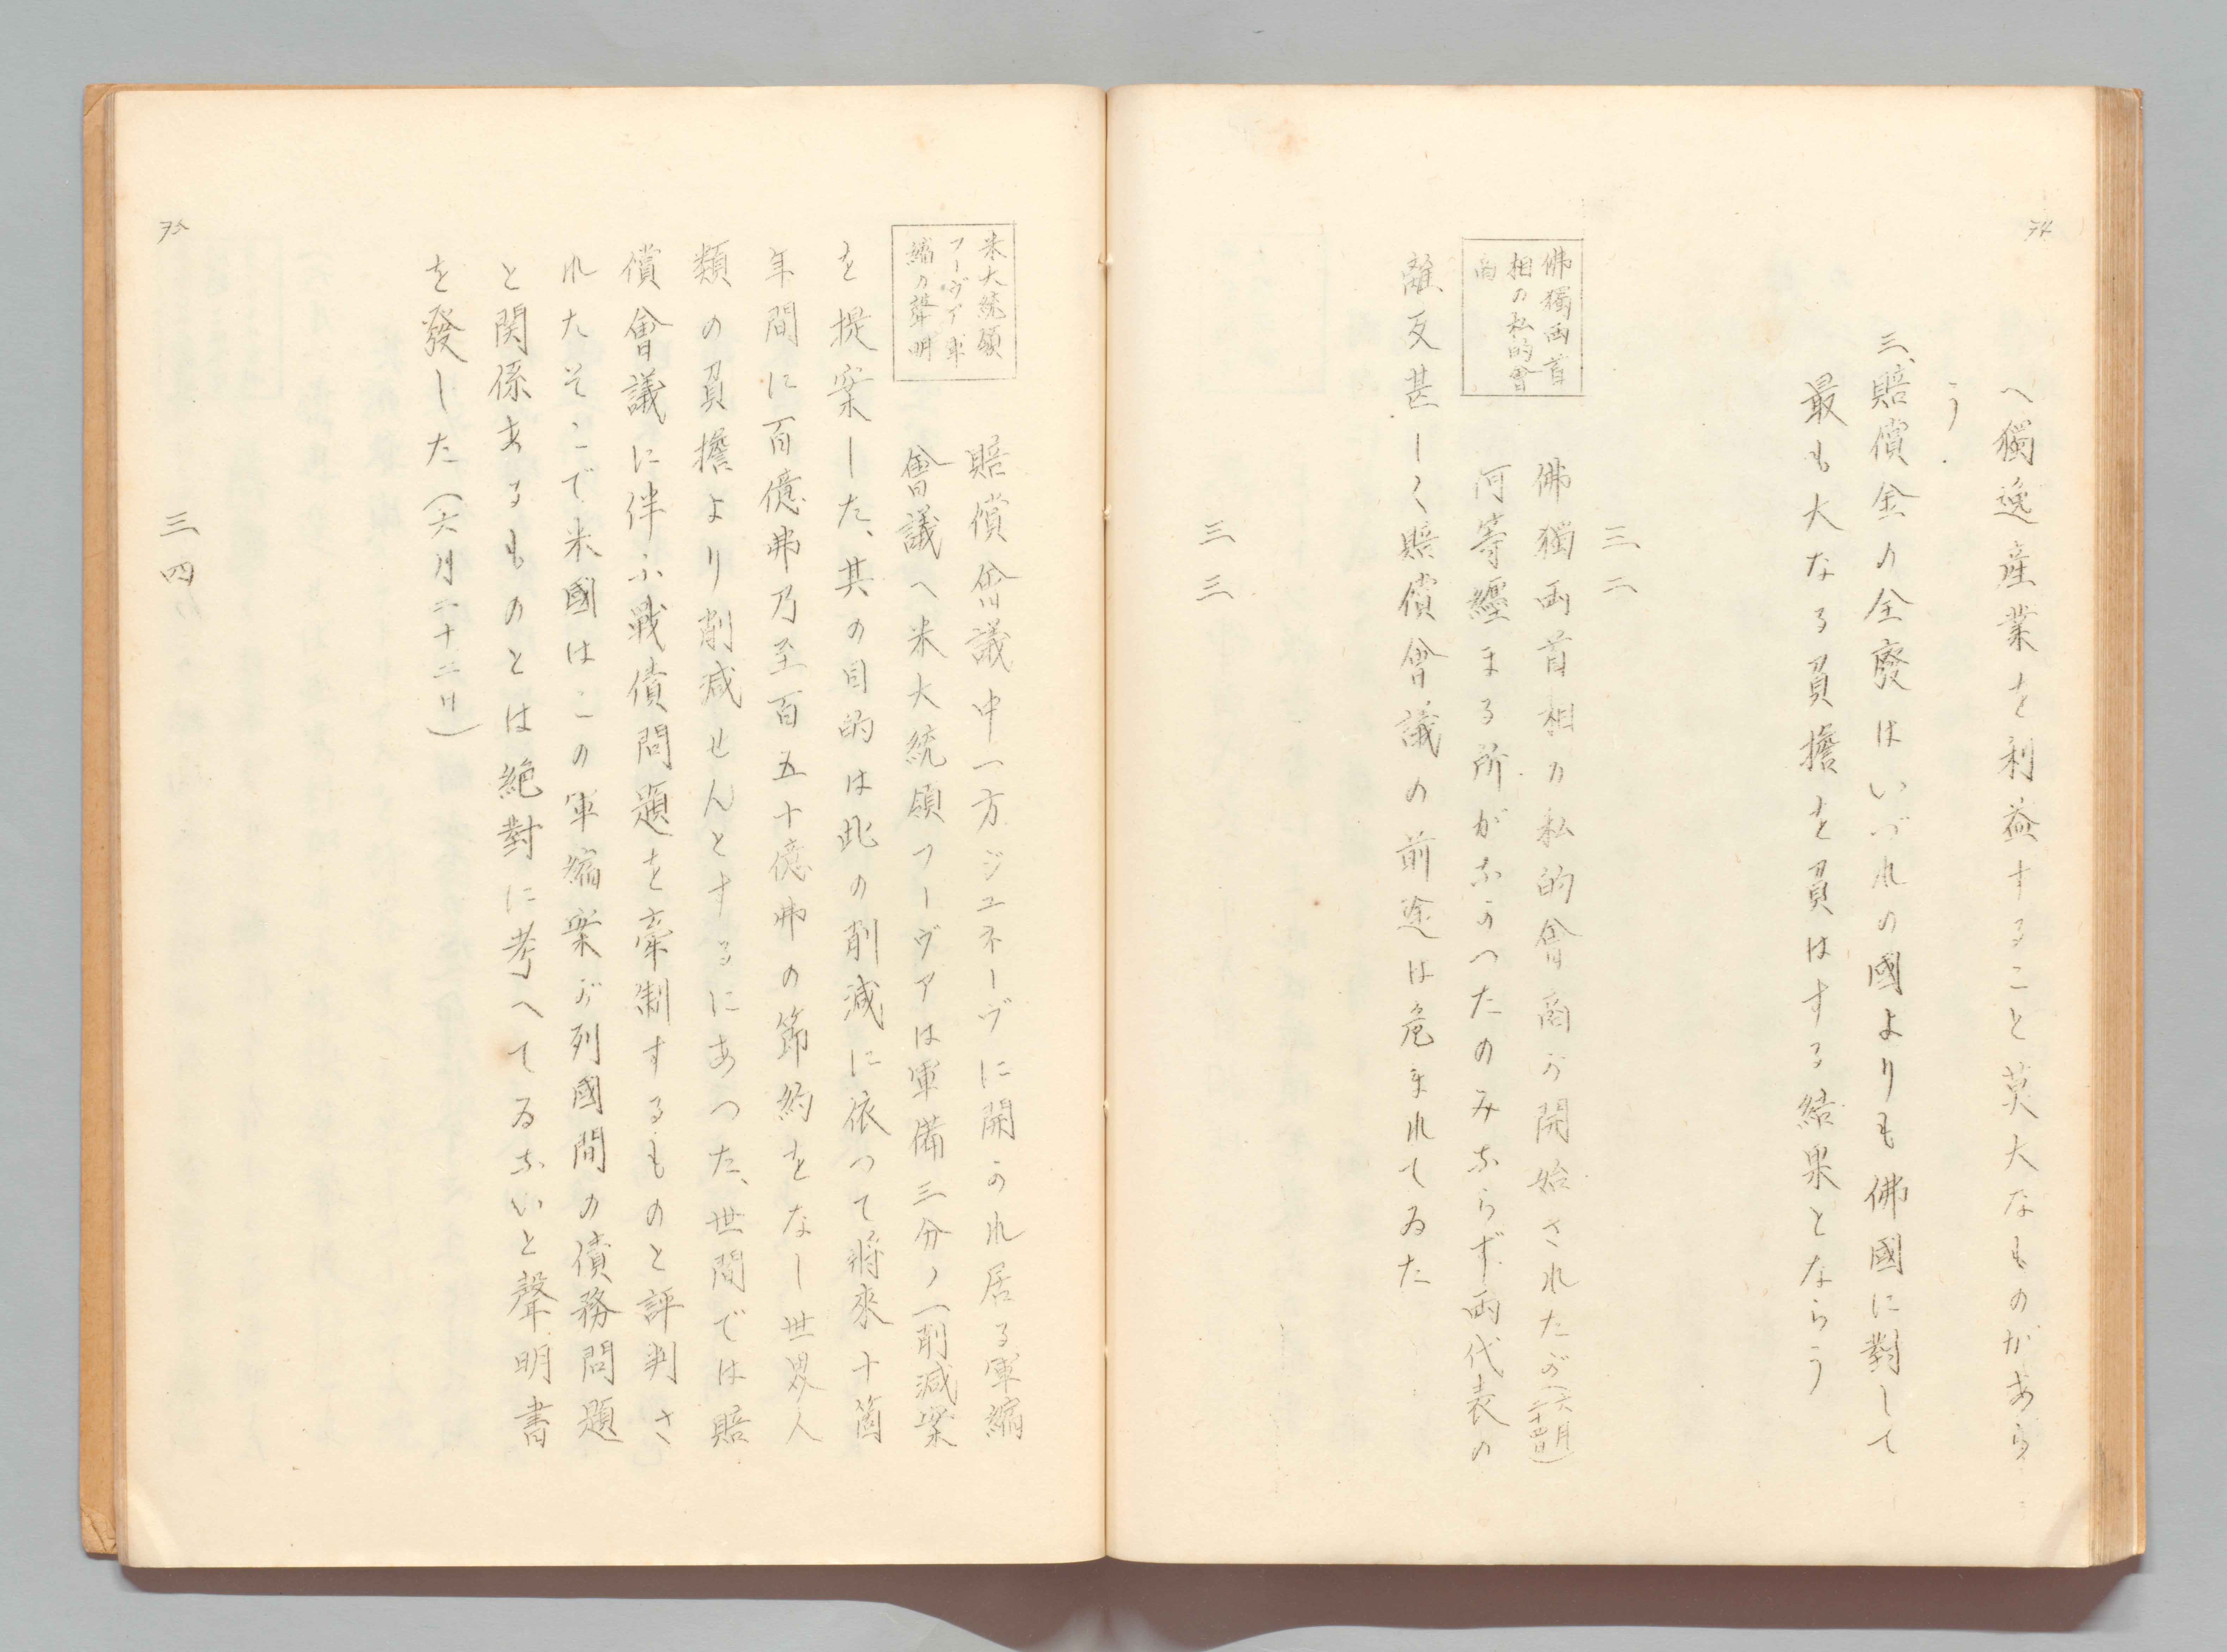 74
へ獨逸産業を利益すること莫大なものがあら
う
三、賠償金の全廢はいづれの國よりも佛國に對して
最も大なる負擔を負はする結果とならう
三二
佛獨両首
相の私的會
商
佛獨両首相の私的會商が開始されたが(六月二十四日)
何等纒まる所がなかつたのみならず両代表の
離反甚しく賠償會議の前途は危まれてゐた
三三
米大統領
フーヴァー軍
縮の聲明
賠償會議中一方ジュネーヴに開かれ居る軍縮
會議へ米大統領フーヴァは軍備三分ノ一削減案
を提案した、其の目的は此の削減に依つて將來十箇
年間に百億弗乃至百五十億弗の節約をなし世界人
類の負擔より削減せんとするにあつた、世間では賠
償會議に伴ふ戰債問題を牽制するものと評判さ
れたそこで米國はこの軍縮案が列國間の債務問題
と関係あるものとは絶對に考へてゐないと聲明書
を發した(六月二十二日)
三四
75